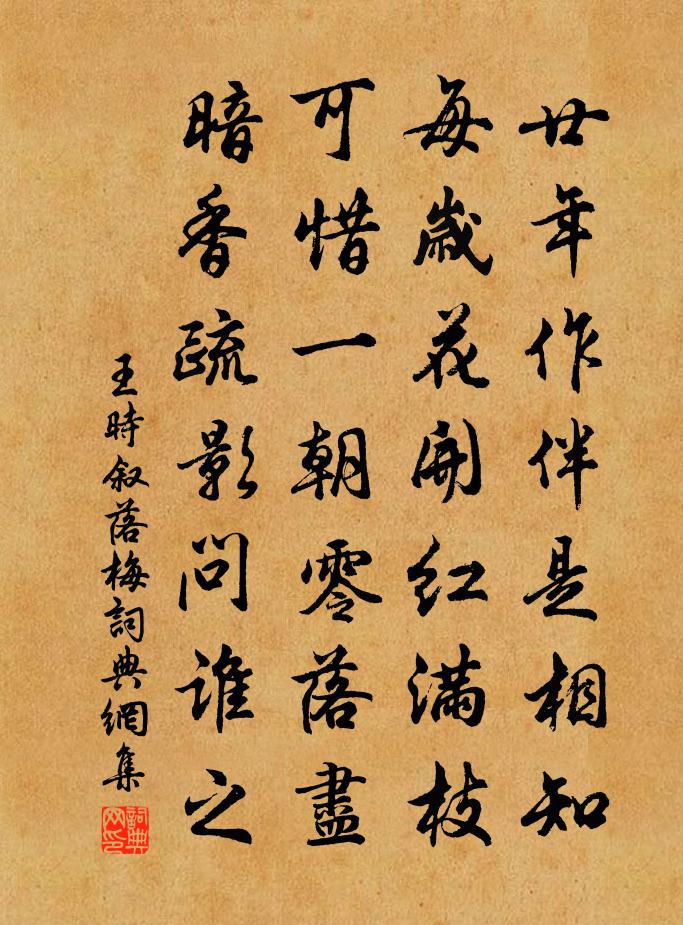 廿年作伴是相知
每歲花開紅滿枝
可惜一朝零落盡
暗香疏影問誰之
王時叙落梅詞典網集
詞典网印